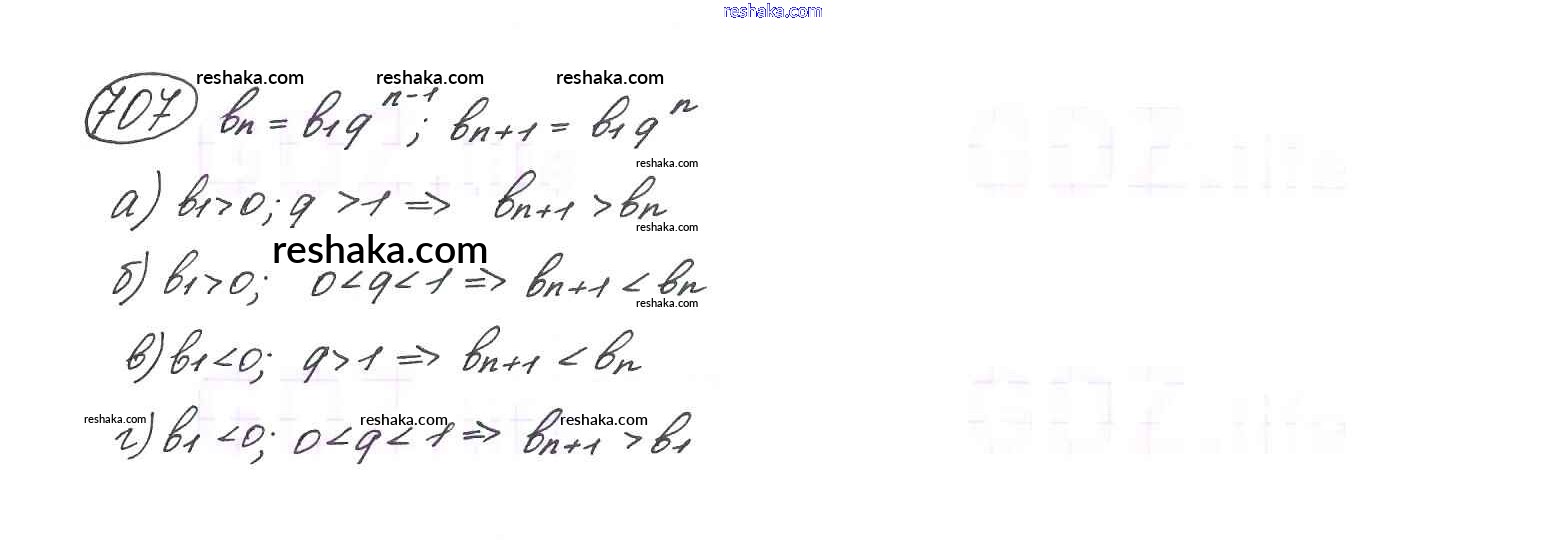 reshaka.com
reshaka.com reshaka.com reshaka.com
707 bn = b1q^n-1; bn+1 = b1q^n
reshaka.com
а) b1>0; q >1 => bn+1 > bn
reshaka.com
reshaka.com
б) b1>0; 0<q<1 => bn+1 < bn
reshaka.com
в) b1<0; q>1 => bn+1 < bn
reshaka.com reshaka.com reshaka.com
г) b1<0; 0<q<1 => bn+1 > b1